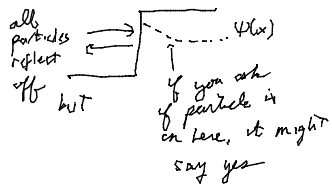 all
particles
reflect
off but
ψ(x)
if you ask
if particle is
in here, it might
say yes